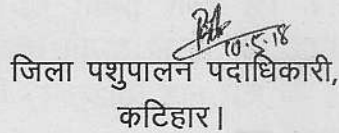 10.5.18
जिला पशुपालन पदाधिकारी,
कटिहार।